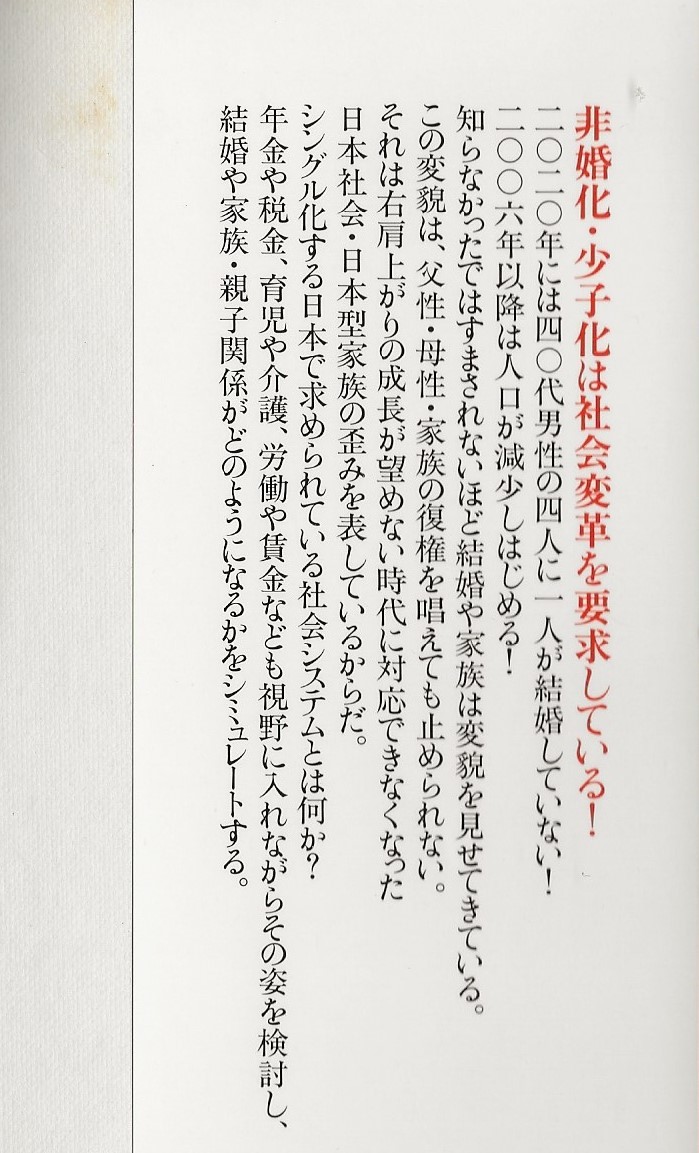 非婚化・少子化は社会変革を要求している！
二〇二〇年には四〇代男性の四人に一人が結婚していない！
二〇〇六年以降は人口が減少しはじめる！
知らなかったではすまされないほど結婚や家族は変貌を見せてきている。
この変貌は、父性・母性・家族の復権を唱えても止められない。
それは右肩上がりの成長が望めない時代に対応できなくなった
日本社会・日本型家族の歪みを表しているからだ。
シングル化する日本で求められている社会システムとは何か？
年金や税金、育児や介護、労働や賃金なども視野に入れながらその姿を検討し、
結婚や家族・親子関係がどのようになるかをシミュレートする。